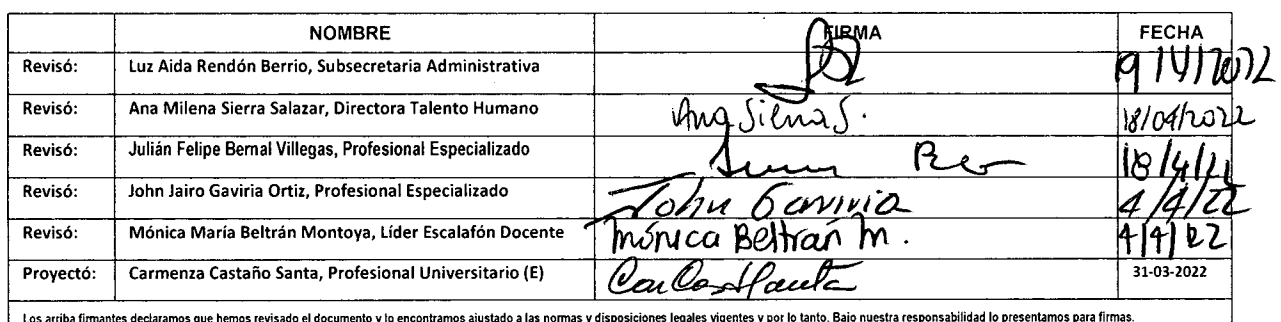 NOMBRE FIRMA FECHA
Revisó: Luz Aida Rendón Berrio, Subsecretaria Administrativa 19/4/2022
Revisó: Ana Milena Sierra Salazar, Directora Talento Humano Ana Sierra S. 18/04/2022
Revisó: Julián Felipe Bernal Villegas, Profesional Especializado 18/4/22
Revisó: John Jairo Gaviria Ortiz, Profesional Especializado John Gaviria 4/4/22
Revisó: Mónica María Beltrán Montoya, Líder Escalafón Docente Mónica Beltrán M. 4/4/22
Proyectó: Carmenza Castaño Santa, Profesional Universitario (E) 31-03-2022
Los arriba firmantes declaramos que hemos revisado el documento y lo encontramos ajustado a las normas y disposiciones legales vigentes y por lo tanto. Bajo nuestra responsabilidad lo presentamos para firmas.